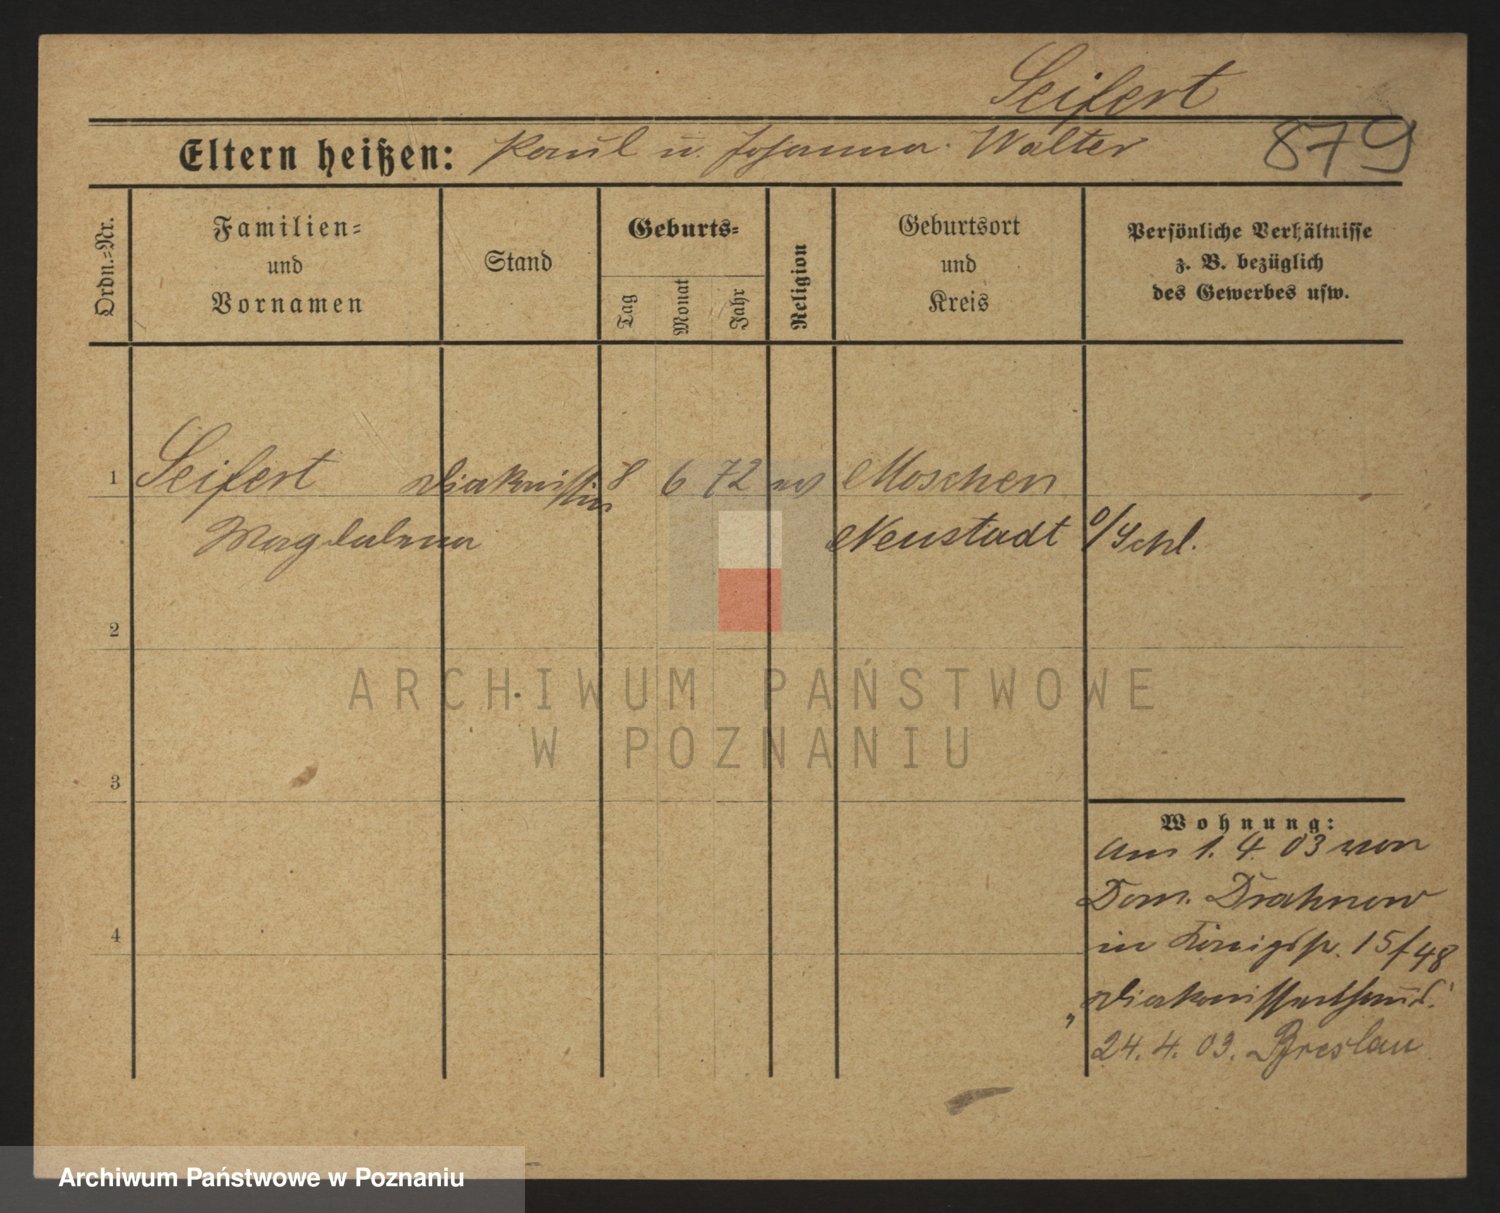 Seifert
Eltern heißen: Paul u. Johanna Walter
879
Ordn.=Nr.
Familien=
und
Vornamen
Stand
Geburts=
Tag
Monat
Jahr
Religion
Geburtsort
und
Kreis
Persönliche Verhältnisse
z. B. bezüglich
des Gewerbes usw.
1 Seifert Diakonissin 8 6 72 ev Moschen
Magdalena Neustadt o/Schl.
2
3
4
Wohnung:
Am 1. 4. 03 von
Dom. Drahnow
in Königspl. 15/48
Diakonissenhaus.
24. 4. 03. Breslau
ARCHIWUM PAŃSTWOWE
W POZNANIU
Archiwum Państwowe w Poznaniu